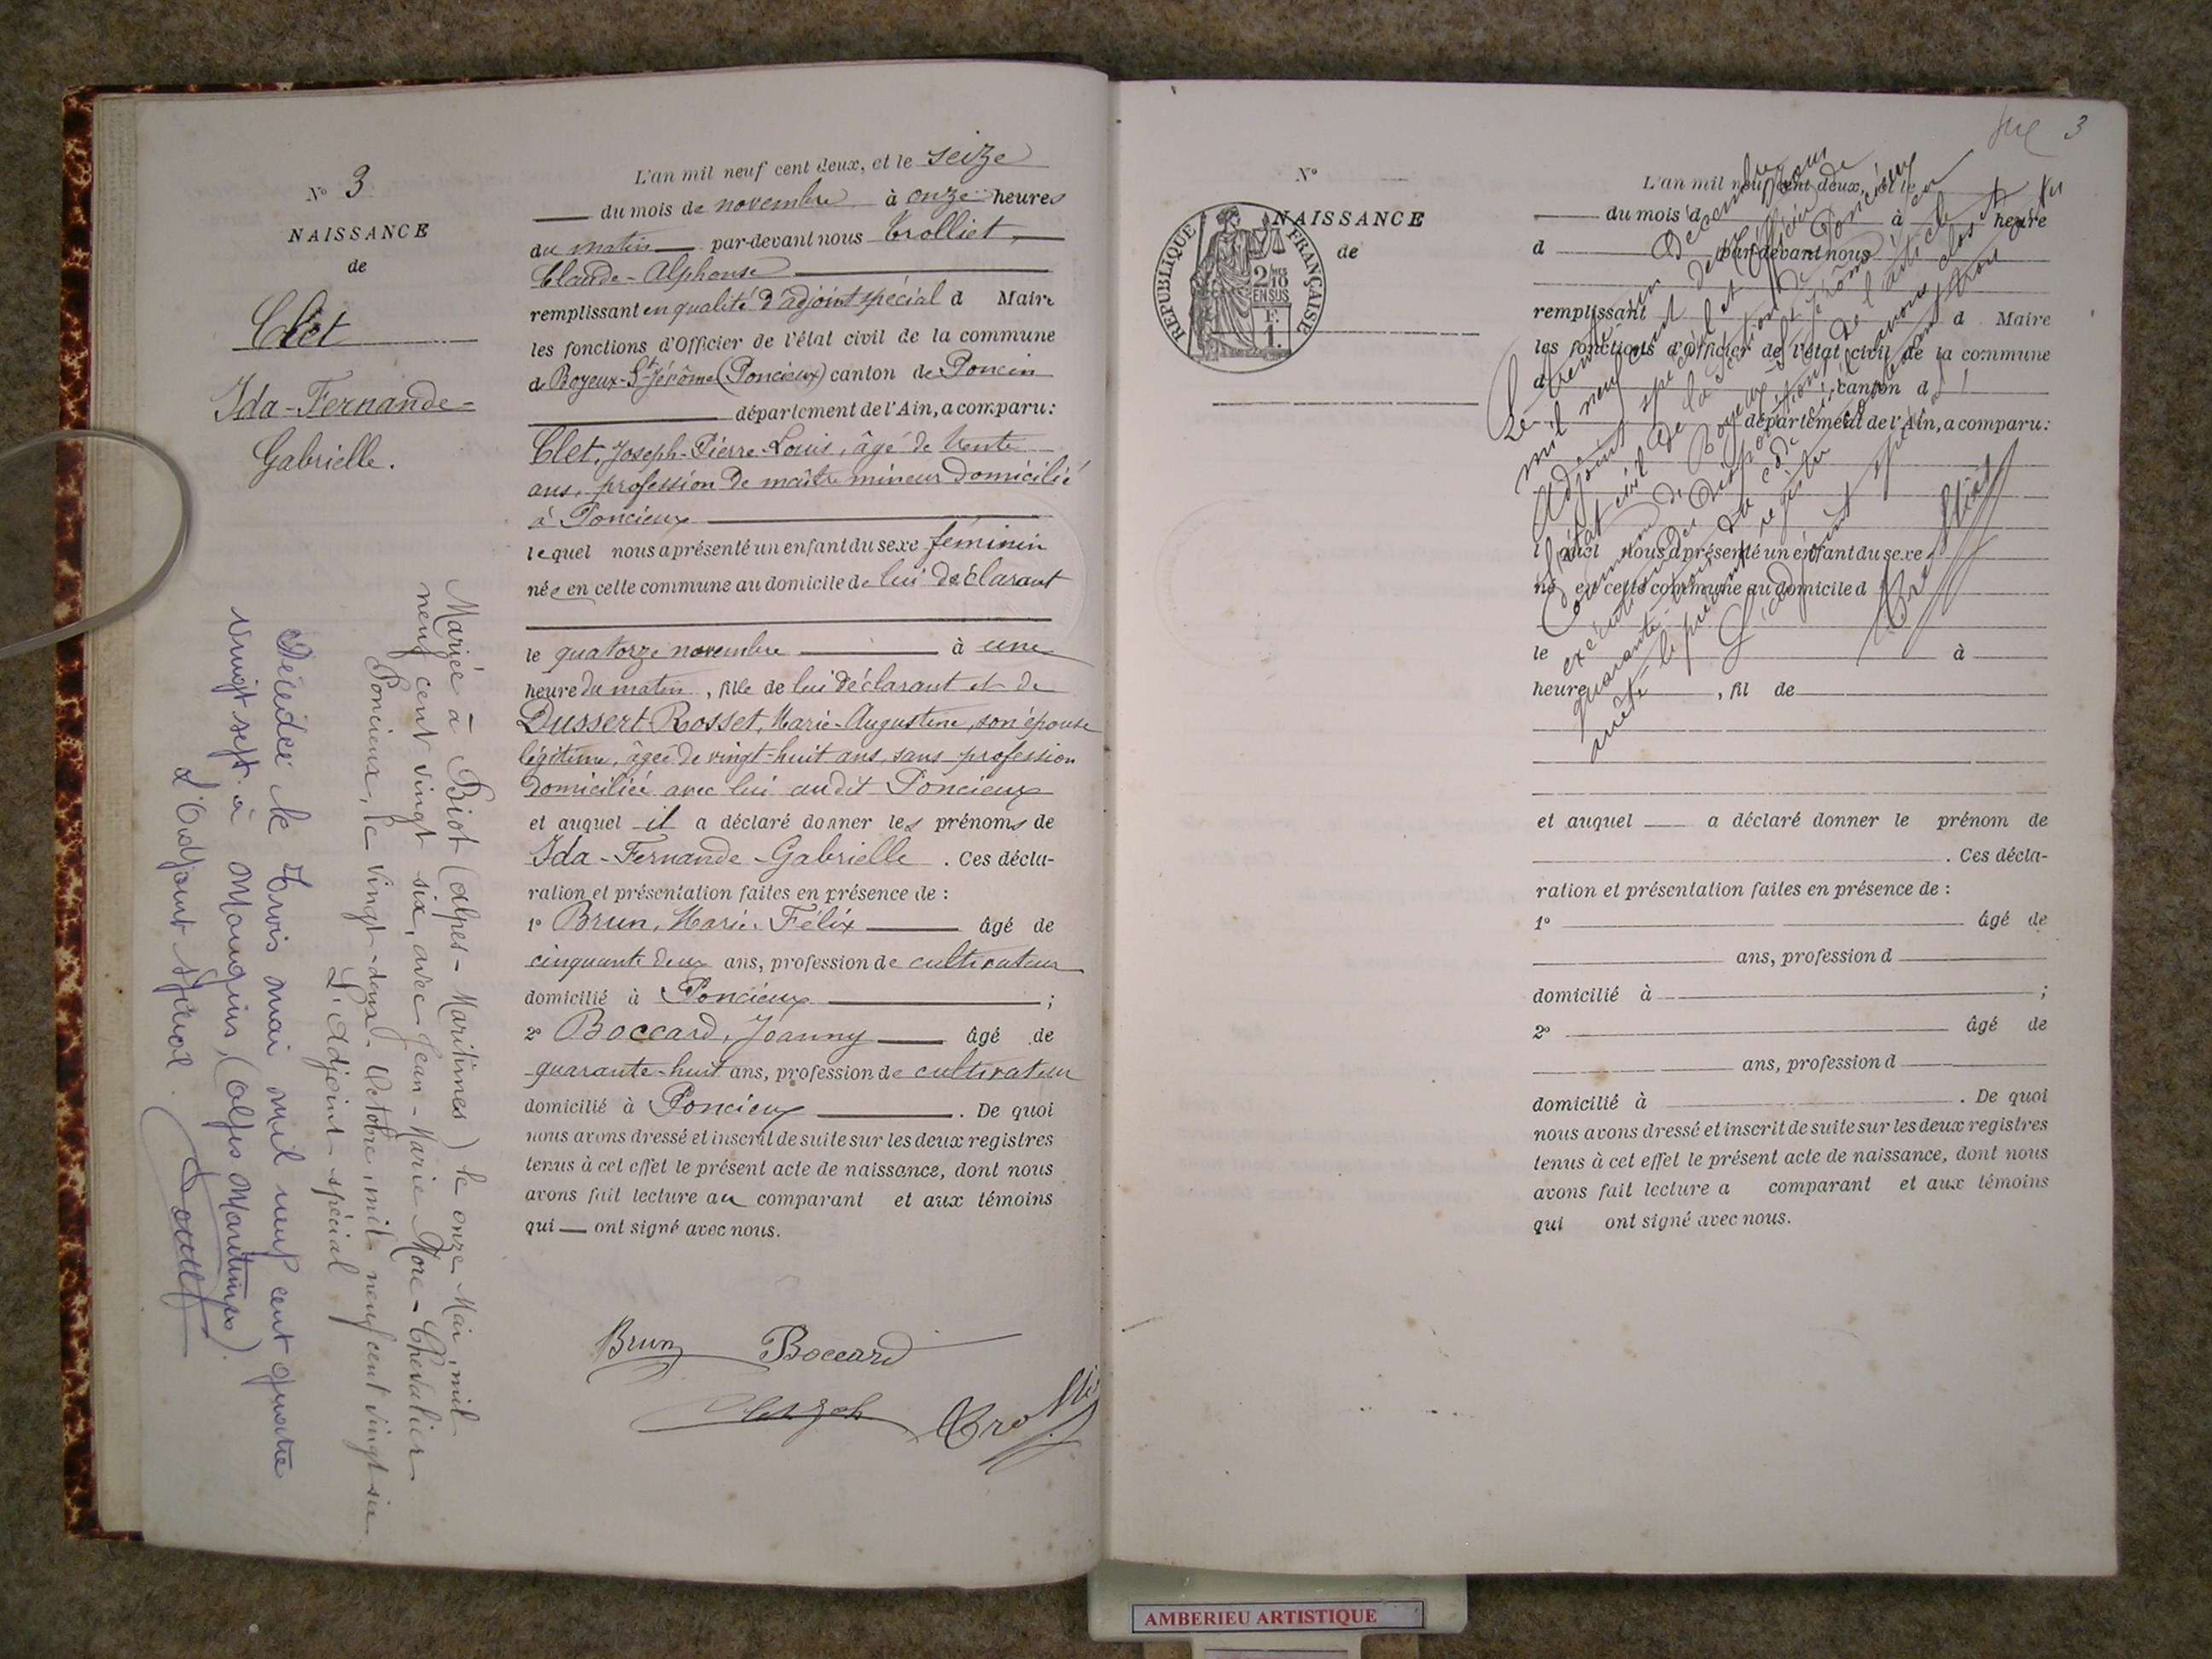 N° 3
NAISSANCE
de
Clet
Ida-Fernande-
Gabrielle.
Mariée à Biot (Alpes-Maritimes) le onze Mai, mil
neuf cent vingt six, avec Jean-Marie More-Chevalier
Poncieux, le vingt-deux Octobre, mil neuf cent vingt-six
L'Adjoint spécial
Décédée le trois mai mil neuf cent quatre
vingt sept à Mougins, (Alpes Maritimes).
L'Adjoint Spécial.
L'an mil neuf cent deux, et le seize
du mois de novembre à onze heures
du matin par-devant nous Trolliet,
Claude-Alphonse
remplissant en qualité d'adjoint spécial d Maire
les fonctions d'Officier de l'état civil de la commune
de Boyeux-St-Jérôme (Poncieux) canton de Poncin
département de l'Ain, a comparu:
Clet, Joseph-Pierre-Louis, âgé de trente
ans, profession de maître mineur domicilié
à Poncieux
lequel nous a présenté un enfant du sexe féminin
née en cette commune au domicile de lui déclarant
le quatorze novembre à une
heure du matin, fille de lui déclarant et de
Dussert-Rosset, Marie-Augustine, son épouse
légitime, âgée de vingt-huit ans, sans profession
domiciliée avec lui audit Poncieux
et auquel il a déclaré donner les prénoms de
Ida-Fernande-Gabrielle. Ces décla-
ration et présentation faites en présence de :
1° Brun, Marie-Félix âgé de
cinquante deux ans, profession de cultivateur
domicilié à Poncieux ;
2° Boccard, Joanny âgé de
quarante-huit ans, profession de cultivateur
domicilié à Poncieux. De quoi
nous avons dressé et inscrit de suite sur les deux registres
tenus à cet effet le présent acte de naissance, dont nous
avons fait lecture au comparant et aux témoins
qui ont signé avec nous.
Brun Boccard
3
N°
NAISSANCE
de
REPUBLIQUE FRANÇAISE
2/10
EN SUS
F.
1.
L'an mil neuf cent deux, et le
du mois d à heure
d par-devant nous
remplissant d Maire
les fonctions d'Officier de l'état civil de la commune
d canton d
département de l'Ain, a comparu:
l quel nous a présenté un enfant du sexe
né en cette commune au domicile d
le à
heure , fil de
et auquel a déclaré donner le prénom de
. Ces décla-
ration et présentation faites en présence de :
1° âgé de
ans, profession d
domicilié à ;
2° âgé de
ans, profession d
domicilié à . De quoi
nous avons dressé et inscrit de suite sur les deux registres
tenus à cet effet le présent acte de naissance, dont nous
avons fait lecture a comparant et aux témoins
qui ont signé avec nous.
AMBERIEU ARTISTIQUE